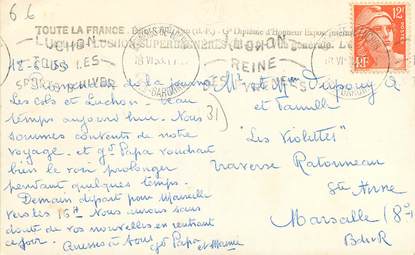 66
TOUTE LA FRANCE
LUCHON SUPERBAGNÈRES
LUCHON
REINE
DES
SPORTS D'HIVER
12F
RF
18-6-53
de la journée
Les cols et Luchon. beau
temps aujourd'hui. Nous
sommes contents de notre
voyage. et gd Papa voudrait
bien le voir prolonger
pendant quelques temps.
Demain départ pour Marseille
vers les 16h. Nous aurons sans
doute de vos nouvelles en rentrant
ce soir.
à tous gd Papa
et Mame
31
Mr et Mme Dupouey
et Famille
"Les Violettes"
Traverse Ratonneau
Ste Anne
Marseille (8e)
B du R